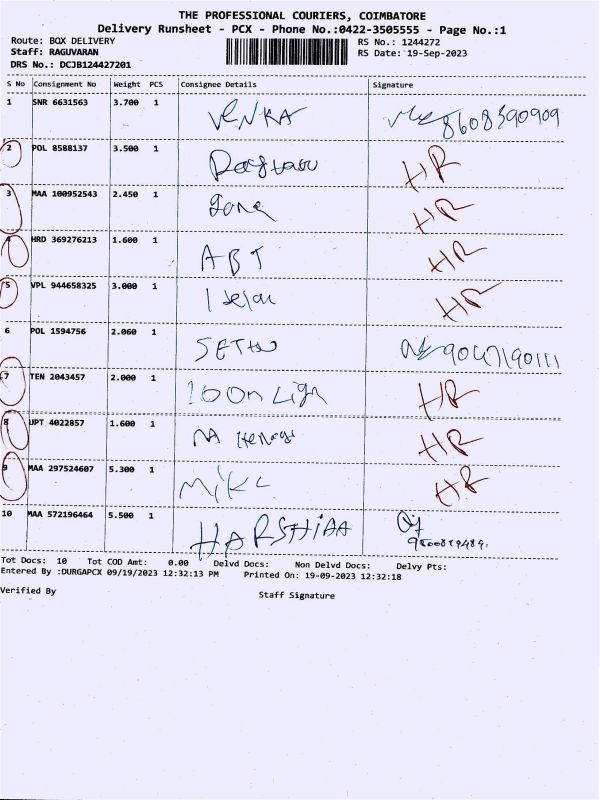 THE PROFESSIONAL COURIERS, COIMBATORE
Delivery Runsheet - PCX - Phone No.:0422-3505555 - Page No.:1
Route: BOX DELIVERY RS No.: 1244272
Staff: RAGUVARAN RS Date: 19-Sep-2023
DRS No.: DCJB124427201
S No Consignment No Weight PCS Consignee Details Signature
1 SNR 6631563 3.700 1 VENKA 8608390909
2 POL 8588137 3.500 1 HR
3 MAA 100952543 2.450 1 HR
4 HRD 369276213 1.600 1 ABT HR
5 VPL 944658325 3.000 1 HR
6 POL 1594756 2.060 1 SETHU
7 TEN 2043457 2.000 1 HR
8 UPT 4022857 1.600 1 HR
9 MAA 297524607 5.300 1 HR
10 MAA 572196464 5.500 1
Tot Docs: 10 Tot COD Amt: 0.00 Delvd Docs: Non Delvd Docs: Delvy Pts:
Entered By :DURGAPCX 09/19/2023 12:32:13 PM Printed On: 19-09-2023 12:32:18
Verified By Staff Signature